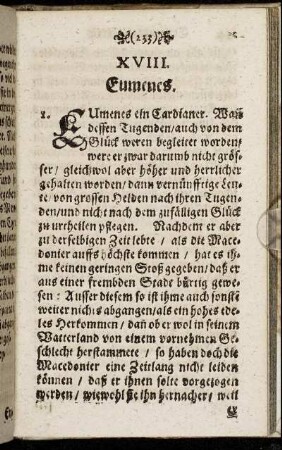 (233)
XVIII.
Eumenes.
1. EUmenes ein Cardianer. Wañ
dessen Tugenden/auch von dem
Glück weren begleitet worden/
were er zwar darumb nicht grös-
ser / gleichwol aber höher und herrlicher
gehalten worden/dann vernünfftige Leu-
te/von grossen Helden nach ihren Tugen-
den/und nicht nach dem zufälligen Glück
zu urtheilen pflegen. Nachdem er aber
zu derselbigen Zeit lebte / als die Mace-
donier auffs höchste kommen / hat es ih-
me keinen geringen Stoß gegeben/daß er
aus einer frembden Stadt bürtig gewe-
sen: Ausser diesem so ist ihme auch sonste
weiter nichts abgangen/als ein hohes ede-
les Herkommen / dañ ob er wol in seinem
Vatterland von einem vornehmen Ge-
schlecht herstammete / so haben doch die
Macedonier eine Zeitlang nicht leiden
können / daß er ihnen solte vorgezogen
werden / wiewohl sie ihn hernacher / weil